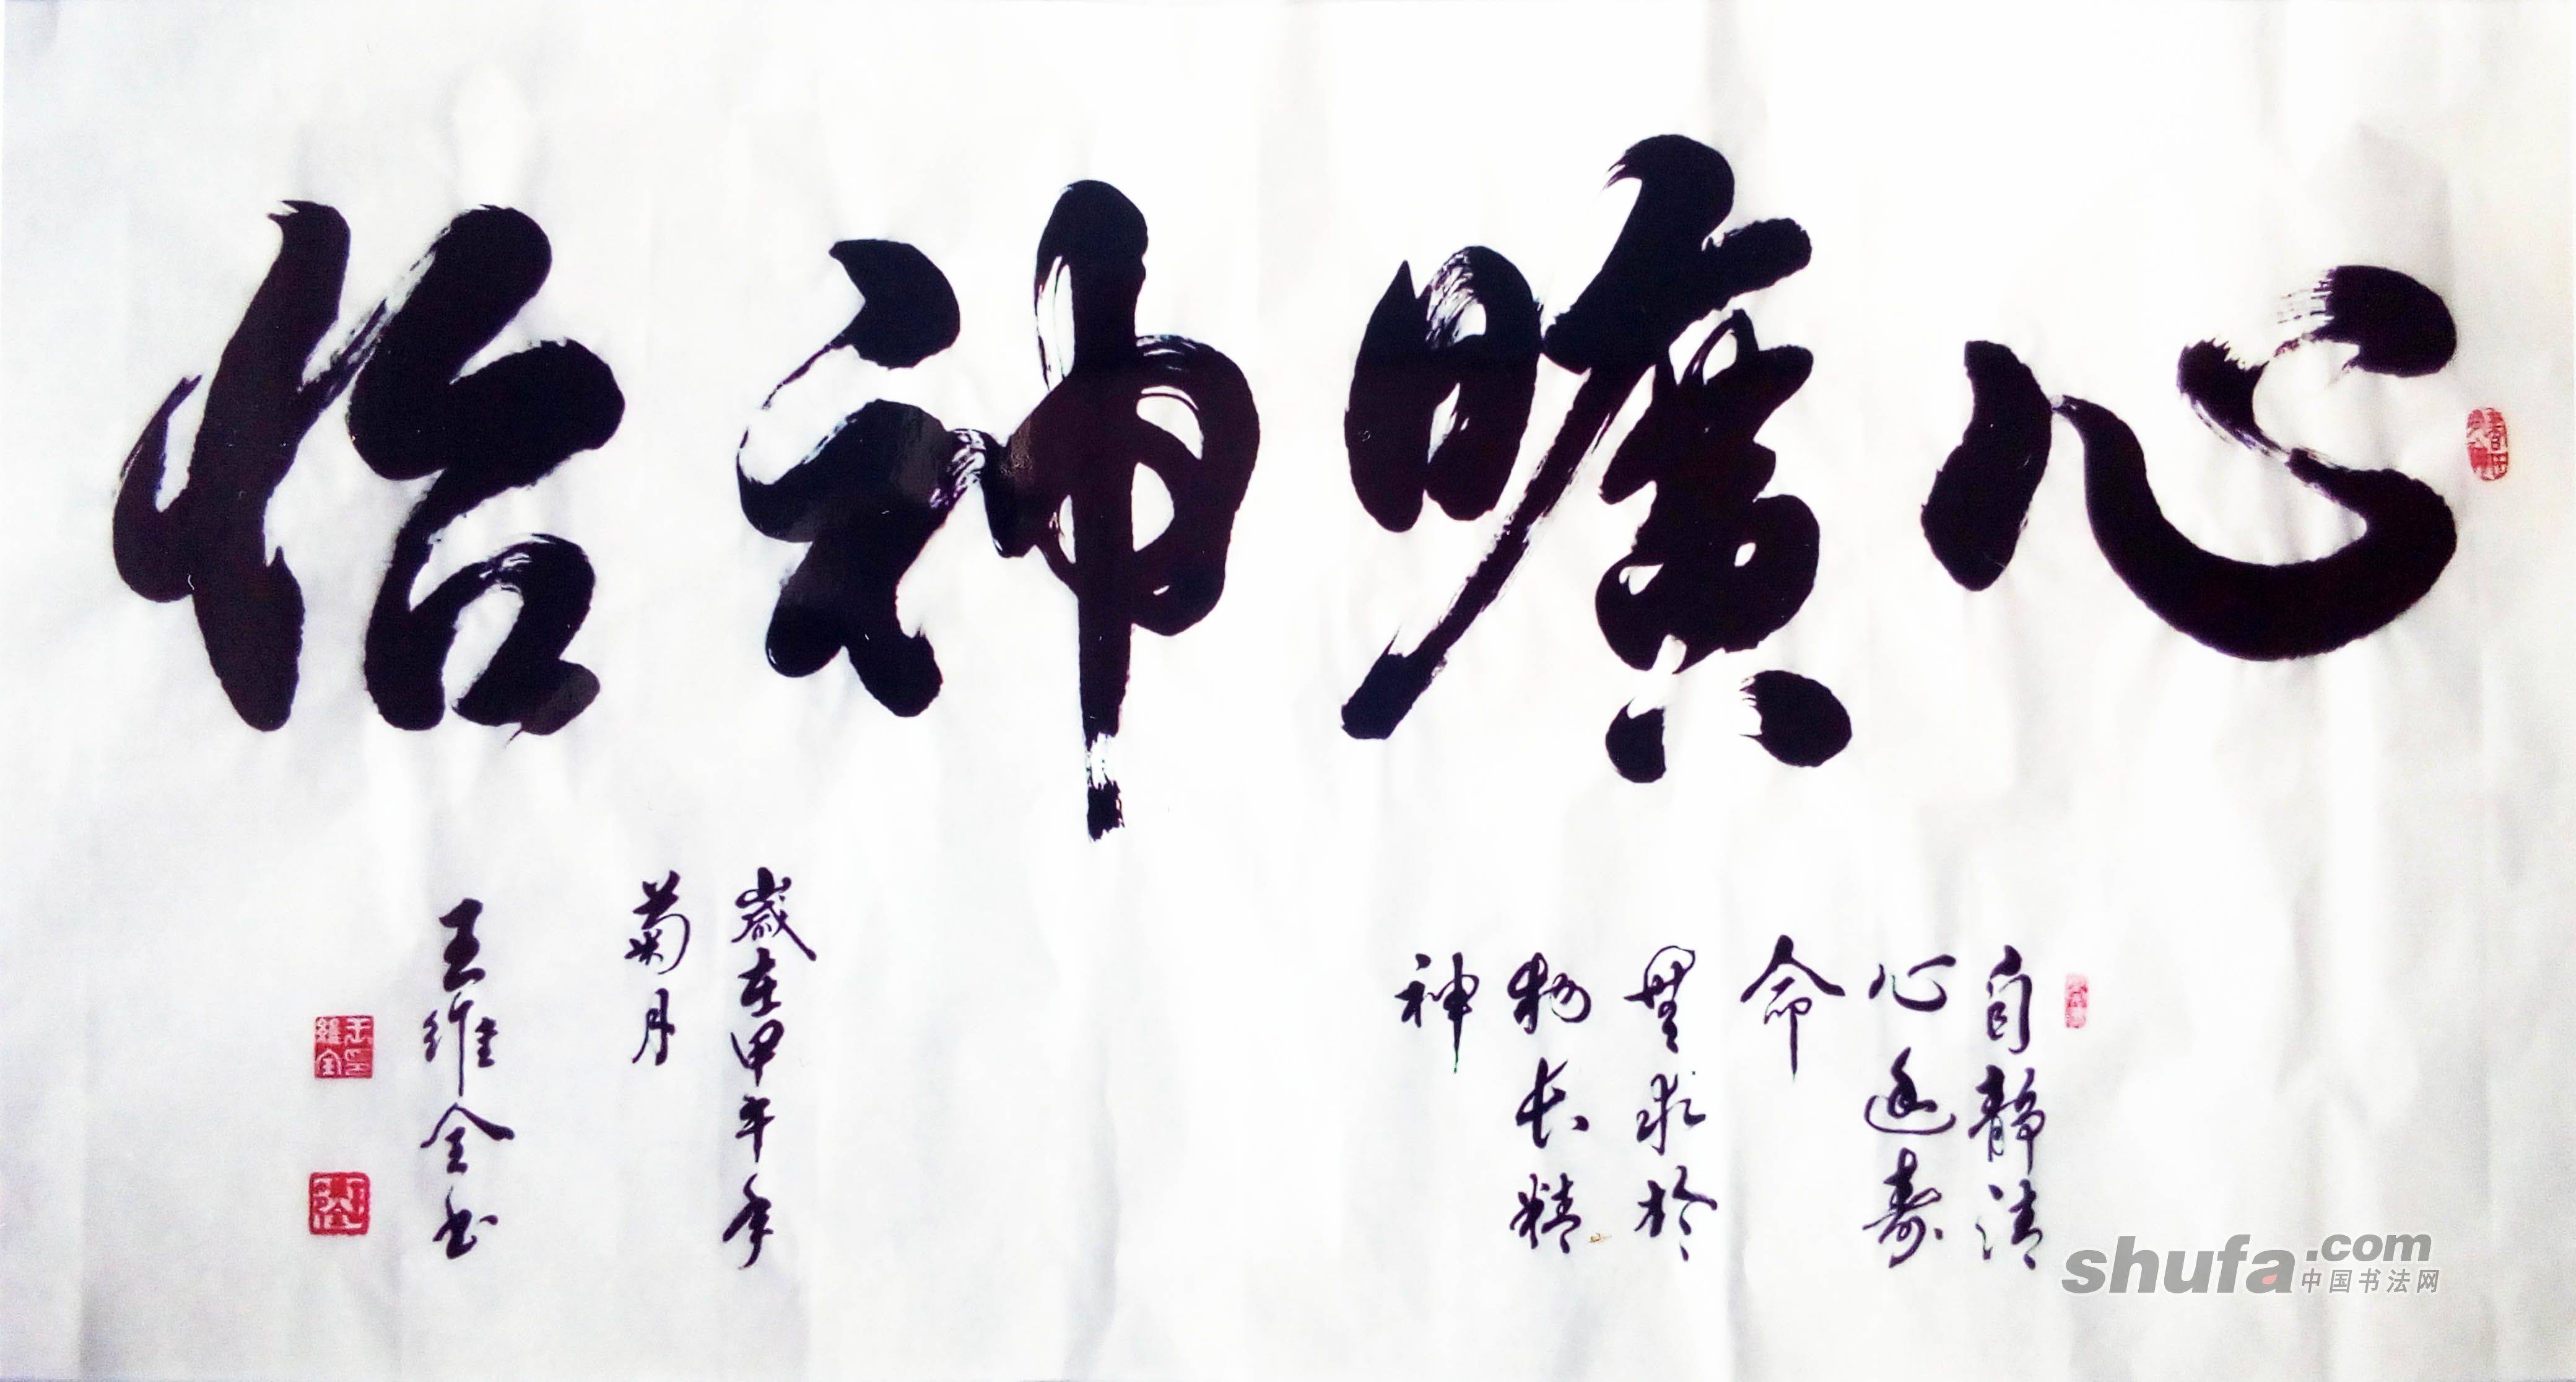 心曠神怡
自靜清
心延壽
命
無求於
物长精
神
歲在甲午年
菊月
王維全书
王印維全
shufa.com
中国书法网